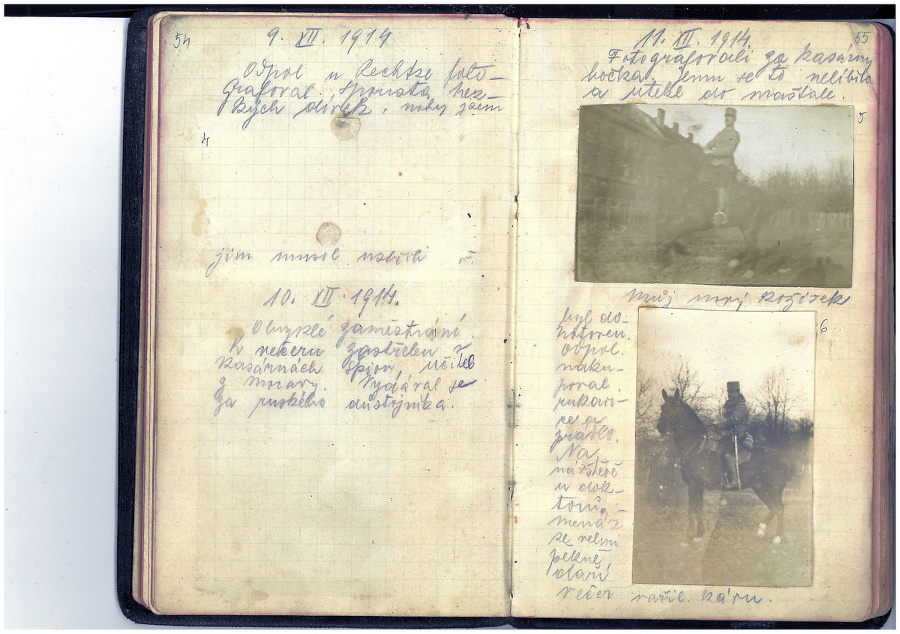 54
9. XII. 1914
Odpol. u Rechtze foto-
grafoval. Spousta hez-
kých dívek, nohy jsem
4
jim musel
10. XII. 1914.
Obvyklé zaměstnání.
K večeru zastřelen v
kasárnách špion, učitel
z Moravy. Vydával se
za ruského důstojníka.
55
11. XII. 1914.
Fotografovali za kasárny
hočka, jemu se to nelíbilo
a utekl do maštale.
5
Můj nový kožíšek
byl do-
hotoven.
Odpol.
naku-
poval
rukavi-
ce a
prádlo.
Na
návštěvě
u dok-
torů,
menáž
se velmi
pěkně
daří
6
Večer vařil. káru.